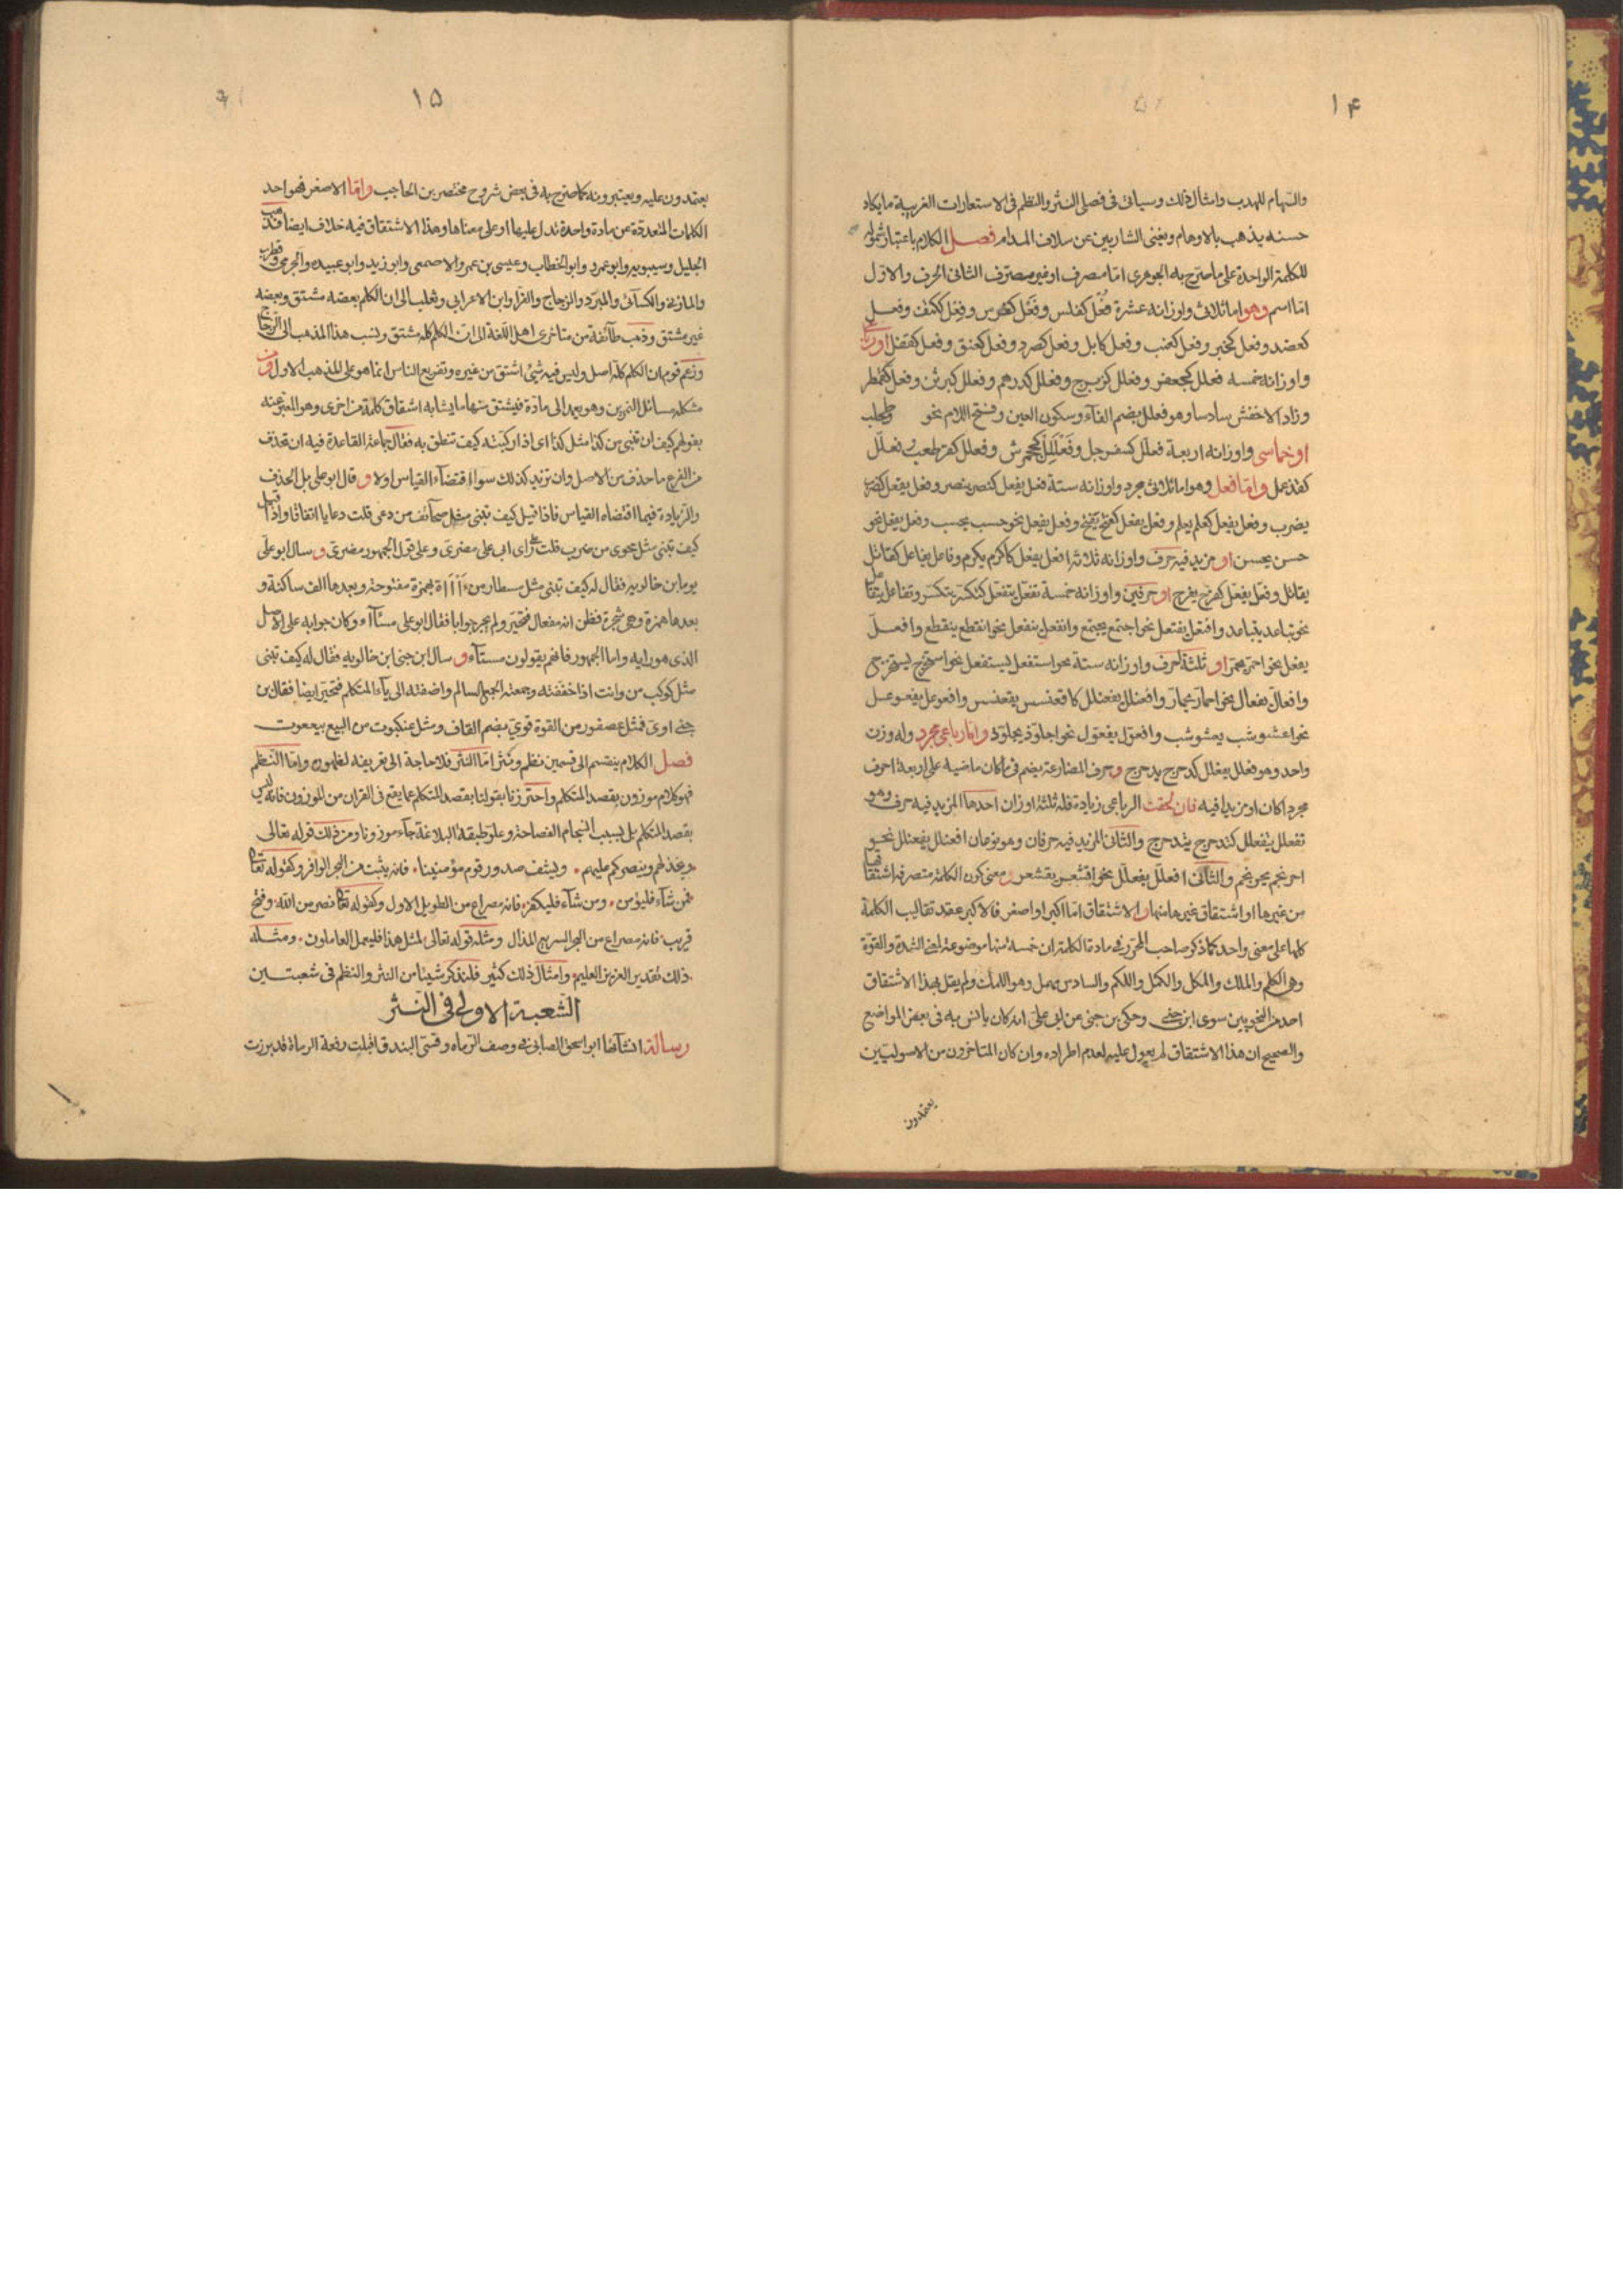 ١٤
والسهام للهدب وامثال ذلك وسياتى فى فصلى النثر والنظم فى الاستعارات الغريبة ما يكاد
حسنه يذهب بالاوهام ويغنى الشاربين عن سلاف المدام فصل الكلام باعتبار شموله
للكلمة الواحدة على ما صرح به الجوهرى اما مصرف او غير مصرف الثانى الحرف والاول
اما اسم وهو اما ثلاثى واوزانه عشرة فعل كفلس وفعل كفرس وفعل ككتف وفعل
كعضد وفعل كحبر وفعل كعنب وفعل كابل وفعل كصرد وفعل كعنق وفعل كقفل او رباعى
واوزانه خمسه فعلل كجعفر وفعلل كزبرج وفعلل كدرهم وفعلل كبرثن وفعل كقمطر
وزاد الاخفش سادسا وهو فعلل بضم الفآء وسكون العين وفتح اللام نحو وطحلب
او خماسى واوزانه اربعة فعلل كسفرجل وفعللل كجحمرش وفعلل كقرطعب وفعلل
كقذعمل واما فعل وهو اما ثلاثى مجرد واوزانه ستة فعل يفعل كنصر ينصر وفعل يفعل كضرب
يضرب وفعل يفعل كعلم يعلم وفعل يفعل كفتح يفتح وفعل يفعل نحو حسب يحسب وفعل يفعل نحو
حسن يحسن او مزيد فيه حرف واوزانه ثلاثة افعل يفعل كاكرم يكرم وفاعل يفاعل كقاتل
يقاتل وفعل يفعل كفرح يفرح او حرفين واوزانه خمسة تفعل يتفعل كتكسر يتكسر وتفاعل يتفاعل
نحو تباعد يتباعد وافتعل يفتعل نحو اجتمع يجتمع وانفعل ينفعل نحو انقطع ينقطع وافعل
يفعل نحو احمر يحمر او ثلثة احرف واوزانه ستة نحو استفعل يستفعل نحو استخرج يستخرج
وافعال يفعال نحو احمار يحمار وافعنلل يفعنلل كاقعنسس يقعنسس وافعوعل يفعوعل
نحو اعشوشب يعشوشب وافعول يفعول نحو اجلوذ يجلوذ واما رباعى مجرد وله وزن
واحد وهو فعلل يفعلل كدحرج يدحرج وحرف المضارعة يضم فى ما كان ماضيه على اربعة احرف
مجردا كان او مزيدا فيه فان لحقت الرباعى زيادة فله ثلثة اوزان احدها المزيد فيه حرف وهو
تفعلل يتفعلل كتدحرج يتدحرج والثانى المزيد فيه حرفان وهو نوعان افعنلل يفعنلل نحو
احرنجم يحرنجم والثانى افعلل يفعلل نحو اقشعر يقشعر ومعنى كون الكلمة متصرفه اشتقاقها
من غيرها او اشتقاق غيرها منها والاشتقاق اما اكبر او اصغر فالاكبر عقد تقاليب الكلمة
كلها على معنى واحد كما ذكر صاحب المحرر فى مادة الكلمة ان خمسة منها موضوعة لمعنى الشدة والقوة
وهى الكلم والملك والمكل والكمل واللكم والسادس مهمل وهو اللمك ولم يقل بهذا الاشتقاق
احد من النحويين سوى ابن جنى وحكى بن جنى عن ابى على انه كان يانس به فى بعض المواضع
والصحيح ان هذا الاشتقاق لم يعول عليه لعدم اطراده وان كان المتاخرون من الاصوليين
يعتمدون
١٥
يعتمدون عليه ويعتبرونه كما صرح به فى بعض شروح مختصر بن الحاجب واما الاصغر فهو احد
الكلمات المتعددة عن مادة واحدة تدل عليها او على معناها وهذا الاشتقاق فيه خلاف ايضا فذهب
الخليل وسيبويه وابو عمرو وابو الخطاب وعيسى بن عمر والاصمعى وابو زيد وابو عبيده والجرمى وقطرب
والمازنى والكسآئى والمبرد والزجاج والفرا وابن الاعرابى وثعلب الى ان الكلم بعضه مشتق وبعضه
غير مشتق وذهب طآئفة من متاخرى اهل اللغة الى ان الكلم كله مشتق ونسب هذا المذهب الى الزجاج
وزعم قوم ان الكلم كله اصل وليس فيه شئ اشتق من غيره وتفريع الناس انما هو على المذهب الاول ومن
مشكله مسائل التمرين وهو يعمد الى مادة فيشتق منها ما يشابه اشتقاق كلمة من اخرى وهو المعبر عنه
بقولهم كيف ان تبنى من كذا مثل كذا اى اذا ركبته كيف تنطق به فقال جماعة القاعدة فيه ان تحذف
من الفرع ما حذف من الاصل وان تزيد كذلك سوا اقتضآء القياس او لا وقال ابو على بل الحذف
والزيادة فيما اقتضاه القياس فاذا قيل كيف تبنى مثل صحآئف من دعى قلت دعايا اتفاقا واذا قيل
كيف تبنى مثل محوى من ضرب قلت على راى ابى على مضرى وعلى قول الجمهور مضرى وسال ابو على
يوما بن خالويه فقال له كيف تبنى مثل سطار من بهمزة مفتوحة وبعدها الف ساكنة و
بعدها همزة وهى شجرة فظن انه مفعال فتحير ولم يحر جوابا فقال ابو على مسئآء وكان جوابه على الاصل
الذى هو رايه واما الجمهور فانهم يقولون مستآء وسال ابن جنى ابن خالويه فقال له كيف تبنى
مثل كوكب من وايت اذا خففته وجمعته الجمع السالم واضفته الى يآء المتكلم فتحير ايضا فقال بن
جنى اوى فمثل عصفور من القوة قوى بضم القاف ومثل عنكبوت من البيع بيععوت
فصل الكلام ينقسم الى قسمين نظم ونثر اما النثر فلا حاجة الى تعريفه لفهمه واما النظم
فهو كلام موزون بقصد المتكلم واحترزنا بقولنا بقصد المتكلم عما يقع فى القران من الموزون فانه ليس
بقصد المتكلم بل بسبب انسجام الفصاحة وعلو طبقة البلاغة جآء موزونا ومن ذلك قوله تعالى
ويخزهم وينصركم عليهم ويشف صدور قوم مؤمنينا فانه بيت من البحر الوافر وكقوله تعالى
فمن شآء فليؤمن ومن شآء فليكفر فانه مصراع من الطويل الاول وكقوله تعالى نصر من الله وفتح
قريب فانه مصراع من البحر السريع المذال ومثله قوله تعالى لمثل هذا فليعمل العاملون ومثله
ذلك تقدير العزيز العليم وامثال ذلك كثير فلنذكر شيئا من النثر والنظم فى شعبتين
الشعبة الاولى فى النثر
رسالة انشآئها ابو اسحق الصابئ فى وصف الرماه وقسى البندق اقبلت رفعة الرماة قد برزت